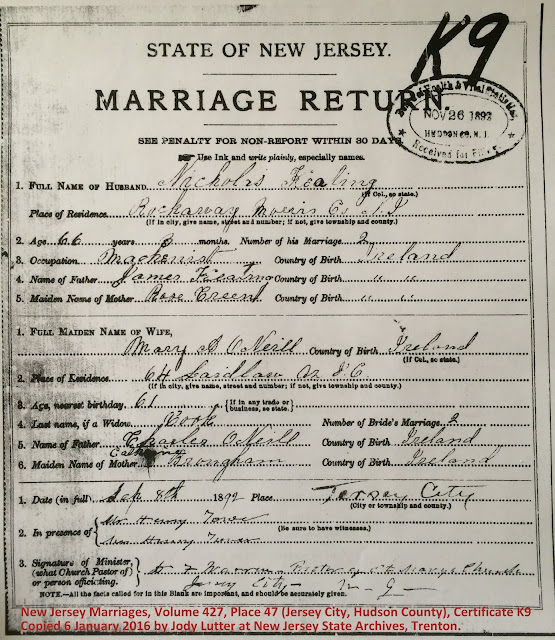 K9
STATE OF NEW JERSEY.
MARRIAGE RETURN.
SEE PENALTY FOR NON-REPORT WITHIN 30 DAYS
Use Ink and write plainly, especially names.
Health & Vital Statistics
NOV 26 1892
HUDSON CO. N. J.
Received for File
1. FULL NAME OF HUSBAND Nicholas Kealing
(If Col., so state.)
Place of Residence Rockaway Morris Co N J
(If in city, give name, street and number; if not, give township and county.)
2. Age 66 years months. Number of his Marriage 2
3. Occupation Machenist Country of Birth Ireland
4. Name of Father James Kealing Country of Birth " "
5. Maiden Name of Mother Rose Green Country of Birth " "
1. FULL MAIDEN NAME OF WIFE,
Mary A O'Neill Country of Birth Ireland
(If Col., so state.)
2. Place of Residence 64 Laidlaw
(If in city, give name, street and number; if not, give township and county.)
3. Age, nearest birthday 61 (If in any trade or business, so state.)
4. Last name, if a Widow Number of Bride's Marriage 2
5. Name of Father Charles O'Neill Country of Birth Ireland
6. Maiden Name of Mother Catherine Brongham Country of Birth Ireland
1. Date (in full) Sep 8th 1892 Place Jersey City
(City or township and county.)
2. In presence of Mr Henry
(Be sure to have witnesses.)
Henry
3. Signature of Minister,
(what Church Pastor of) Rector of Church
or person officiating. Jersey City N J
NOTE.—All the facts called for in this Blank are important, and should be accurately given.
New Jersey Marriages, Volume 427, Place 47 (Jersey City, Hudson County), Certificate K9
Copied 6 January 2016 by Jody Lutter at New Jersey State Archives, Trenton.